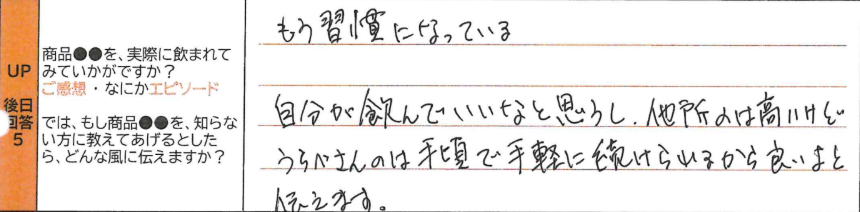 UP
後日
回答
5
商品●●を、実際に飲まれて
みていかがですか？
ご感想・なにかエピソード
では、もし商品●●を、知らな
い方に教えてあげるとした
ら、どんな風に伝えますか？
もう習慣になっている
自分が飲んでいいなと思うし、他所のは高いけど
うらべさんのは手頃で手軽に続けられるから良いよと
伝えます。